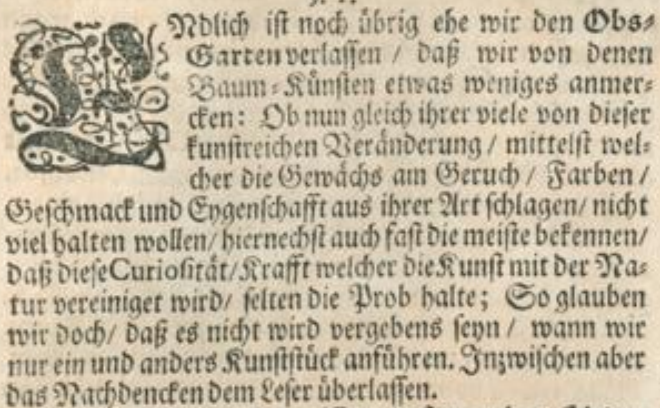 ENdlich ist noch übrig ehe wir den Obs-
Garten verlassen / daß wir von denen
Baum-Künsten etwas weniges anmer-
cken: Ob nun gleich ihrer viele von dieser
kunstreichen Veränderung / mittelst wel-
cher die Gewächs am Geruch / Farben /
Geschmack und Eygenschafft aus ihrer Art schlagen / nicht
viel halten wollen / hiernechst auch fast die meiste bekennen /
daß diese Curiosität / Krafft welcher die Kunst mit der Na-
tur vereiniget wird / selten die Prob halte; So glauben
wir doch / daß es nicht wird vergebens seyn / wann wir
nur ein und anders Kunststück anführen. Inzwischen aber
das Nachdencken dem Leser überlassen.